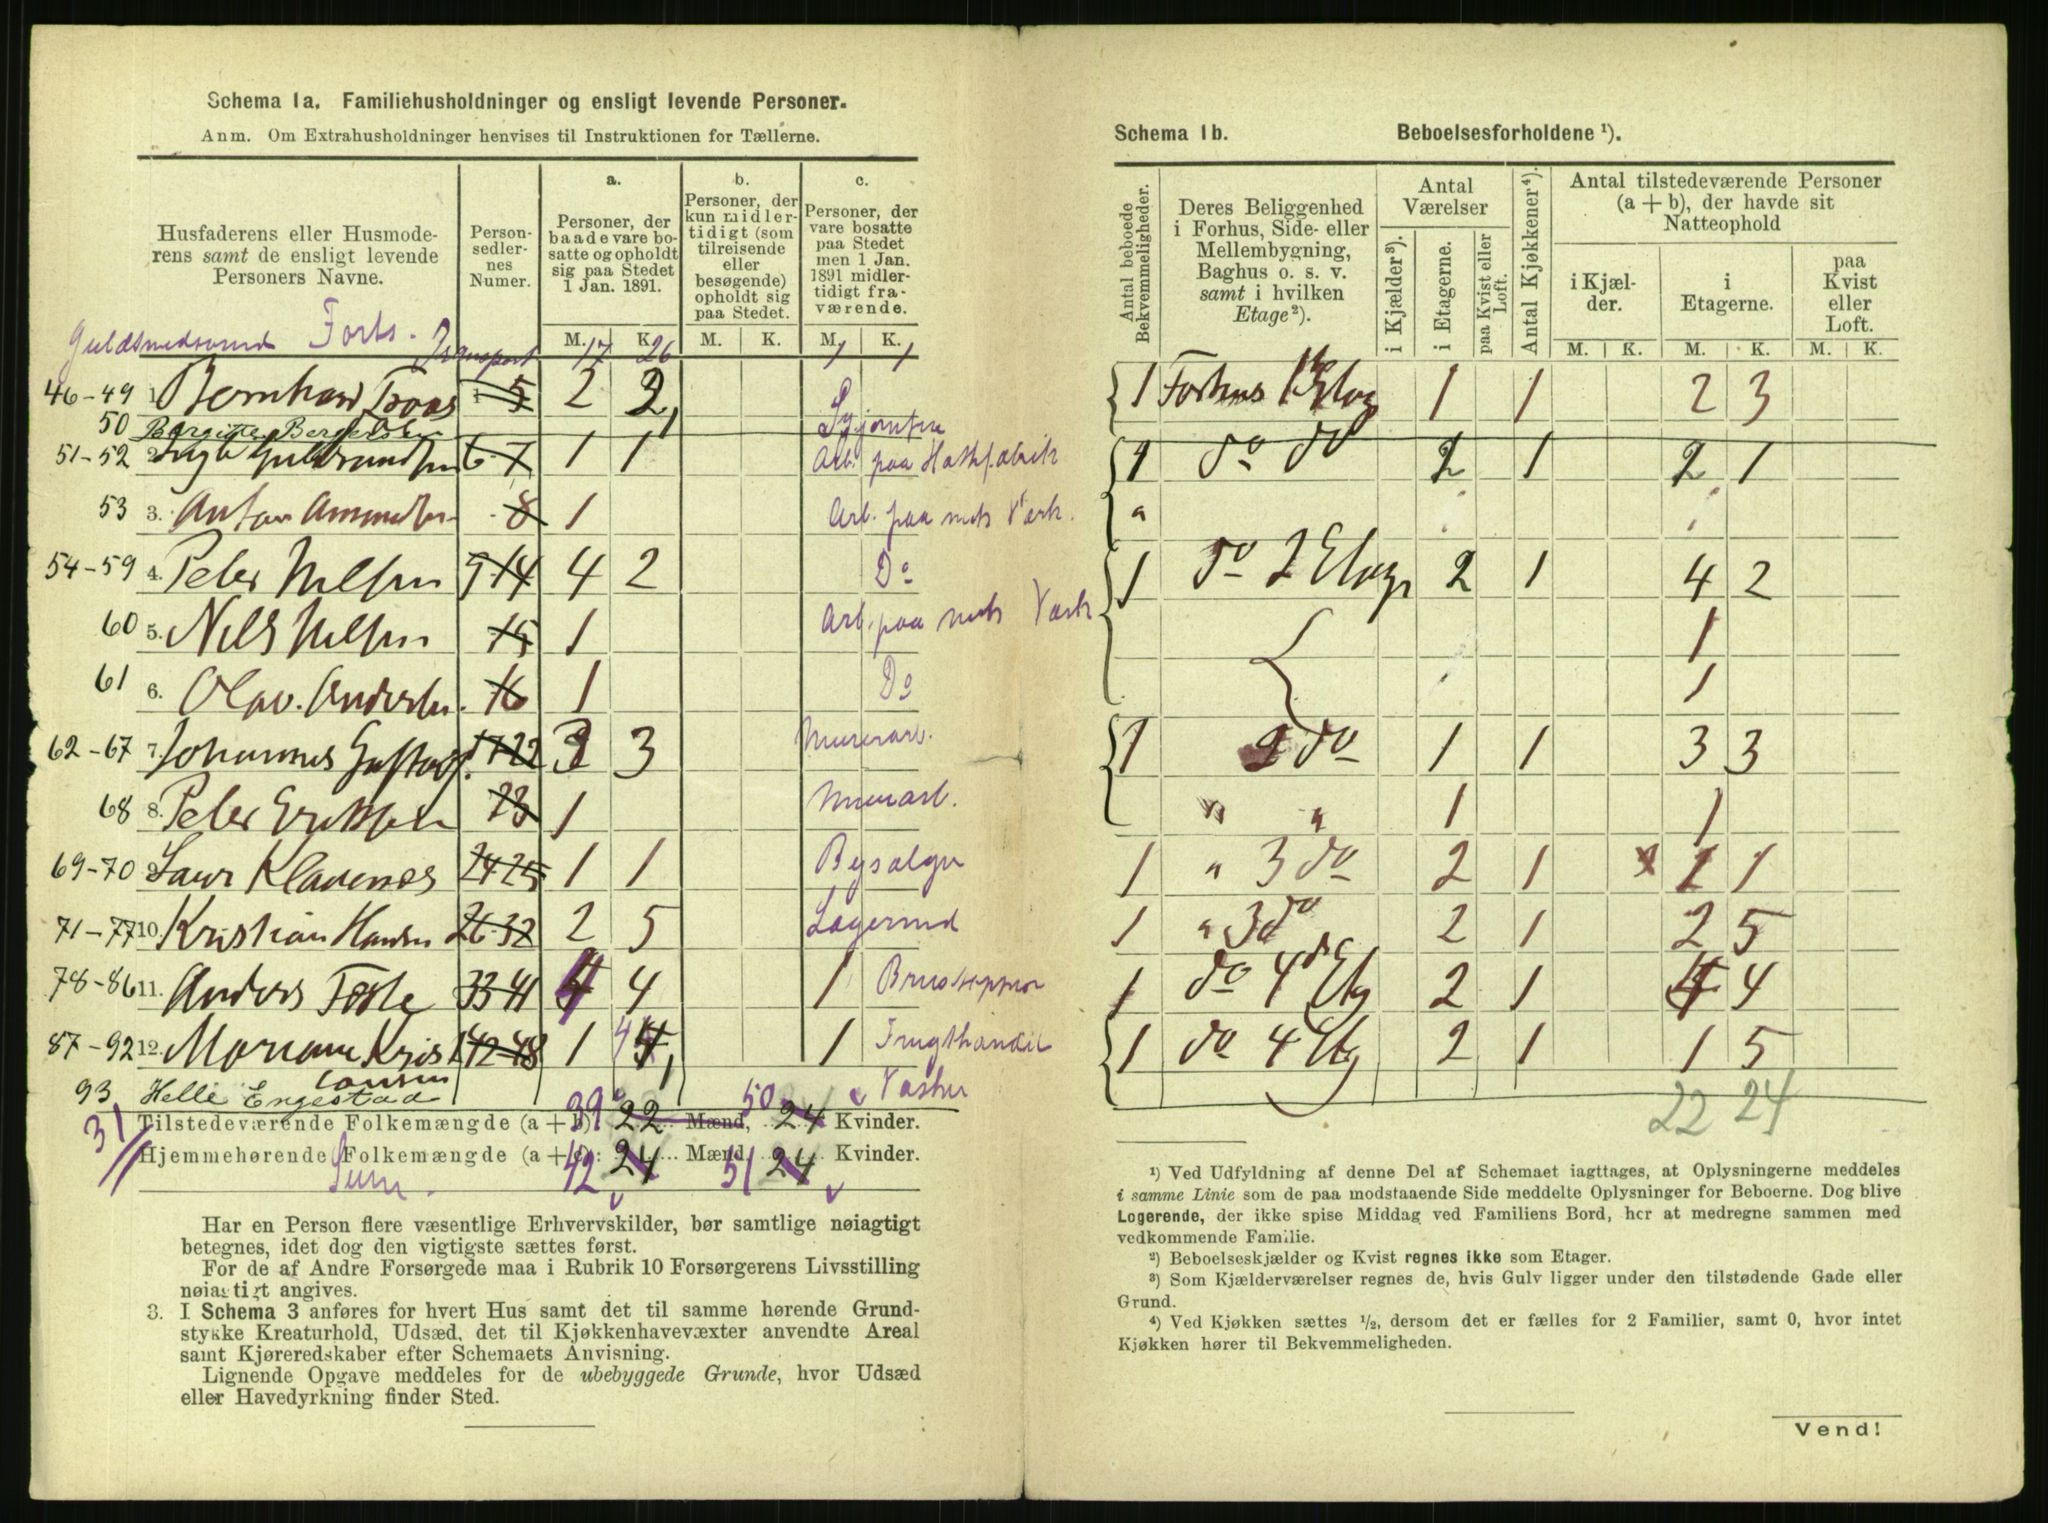 Schema 1a. Familiehusholdninger og ensligt levende Personer.
Anm. Om Extrahusholdninger henvises til Instruktionen for Tællerne.
Husfaderens eller Husmoderens samt de ensligt levende Personers Navne.
Personsedlernes Numer.
a.
Personer, der baade vare bosatte og opholdt sig paa Stedet 1 Jan. 1891.
b.
Personer, der kun midlertidigt (som tilreisende eller besøgende) opholdt sig paa Stedet.
c.
Personer, der vare bosatte paa Stedet men 1 Jan. 1891 midlertidigt fraværende.
Forts. Transport
M. 17 K. 26 M. K. M. 1 K. 1
46-49 1. Bernhard 5 2 2
50 Birgitte Bergersen Syjomfru
51-52 2. 6-7 1 1 Arb. paa Hatfabrik
53 3. Anton Amundsen 8 1 Arb. paa mek Værk.
54-59 4. Peter Nilsen 9-14 4 2 Do
60 5. Nils Nilsen 15 1 Arb. paa mek Værk
61 6. Olav. Andersen. 16 1 Do
62-67 7. Johannes Gustavs. 17-22 3 3 Murerarb.
68 8. Peter Eriksen 23 1 Murarb.
69-70 9. Laur Klavenes 24-25 1 1 Bysælger
71-77 10. Kristian Hansen 26-32 2 5
78-86 11. Anders 33-41 4 4 1
87-92 12. Mariane Kristiansen 42-48 1 4 1 Frugthandel
93 Helle Engestad Vasker
Tilstedeværende Folkemængde (a + b) 39 22 Mænd, 50 24 Kvinder.
31
Hjemmehørende Folkemængde (a + c): 42 24 Mænd 51 24 Kvinder.
Sum.
Har en Person flere væsentlige Erhvervskilder, bør samtlige nøiagtigt
betegnes, idet dog den vigtigste sættes først.
For de af Andre Forsørgede maa i Rubrik 10 Forsørgerens Livsstilling
nøiagtigt angives.
3. I Schema 3 anføres for hvert Hus samt det til samme hørende Grund-
stykke Kreaturhold, Udsæd, det til Kjøkkenhavevæxter anvendte Areal
samt Kjøreredskaber efter Schemaets Anvisning.
Lignende Opgave meddeles for de ubebyggede Grunde, hvor Udsæd
eller Havedyrkning finder Sted.
Schema 1b. Beboelsesforholdene ¹).
Antal beboede Bekvemmeligheder.
Deres Beliggenhed i Forhus, Side- eller Mellembygning, Baghus o. s. v. samt i hvilken Etage²).
Antal Værelser
i Kjælder³).
i Etagerne.
paa Kvist eller Loft.
Antal Kjøkkener⁴).
Antal tilstedeværende Personer (a + b), der havde sit Natteophold
i Kjælder.
i Etagerne.
paa Kvist eller Loft.
M. K. M. K. M. K.
1 Forhus 1 Etag 1 1 2 3
1 do do 2 1 2 1
"
1 do 2 Etag 2 1 4 2
1
1
1 2 do 1 1 3 3
" " 1 1
1 " 3 do 2 1 1 1
1 " 3 do 2 1 2 5
1 do 4 Etg 2 1 4 4
1 do 4 Etg 2 1 1 5
22 24
¹) Ved Udfyldning af denne Del af Schemaet iagttages, at Oplysningerne meddeles
i samme Linie som de paa modstaaende Side meddelte Oplysninger for Beboerne. Dog blive
Logerende, der ikke spise Middag ved Familiens Bord, her at medregne sammen med
vedkommende Familie.
²) Beboelseskjælder og Kvist regnes ikke som Etager.
³) Som Kjælderværelser regnes de, hvis Gulv ligger under den tilstødende Gade eller
Grund.
⁴) Ved Kjøkken sættes ½, dersom det er fælles for 2 Familier, samt 0, hvor intet
Kjøkken hører til Bekvemmeligheden.
Vend!